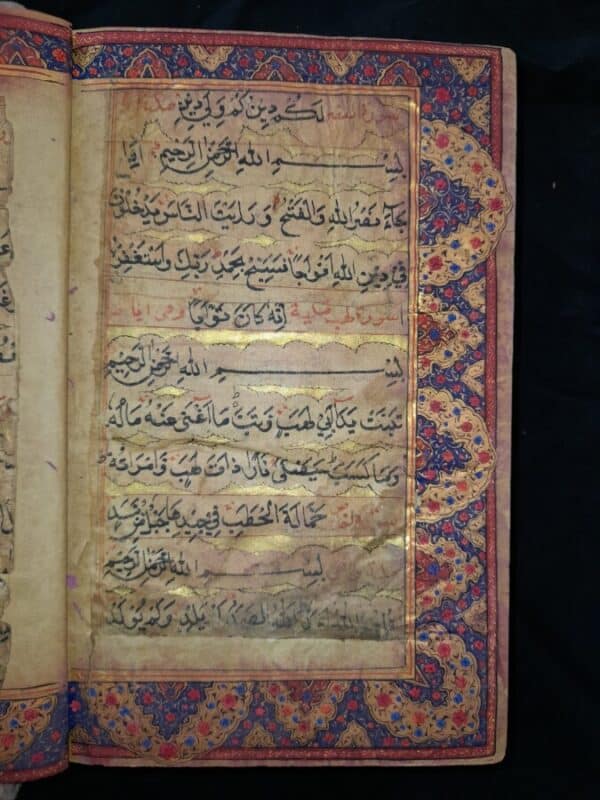 لَكُمْ دِينُكُمْ وَلِيَ دِينِ
بِسْمِ اللهِ الرَّحْمٰنِ الرَّحِيمِ اِذَا
جَآءَ نَصْرُ اللهِ وَالْفَتْحُ وَرَاَيْتَ النَّاسَ يَدْخُلُونَ
فِي دِينِ اللهِ اَفْوَاجًا فَسَبِّحْ بِحَمْدِ رَبِّكَ وَاسْتَغْفِرْهُ
سورة لهب مكية اِنَّهُ كَانَ تَوَّابًا وهى ايات
بِسْمِ اللهِ الرَّحْمٰنِ الرَّحِيمِ
تَبَّتْ يَدَا اَبِي لَهَبٍ وَتَبَّ مَا اَغْنٰى عَنْهُ مَالُهُ
وَمَا كَسَبَ سَيَصْلٰى نَارًا ذَاتَ لَهَبٍ وَامْرَاَتُهُ
حَمَّالَةَ الْحَطَبِ فِي جِيدِهَا حَبْلٌ مِنْ مَسَدٍ
بِسْمِ اللهِ الرَّحْمٰنِ الرَّحِيمِ
قُلْ هُوَ اللهُ اَحَدٌ اللهُ الصَّمَدُ لَمْ يَلِدْ وَلَمْ يُولَدْ